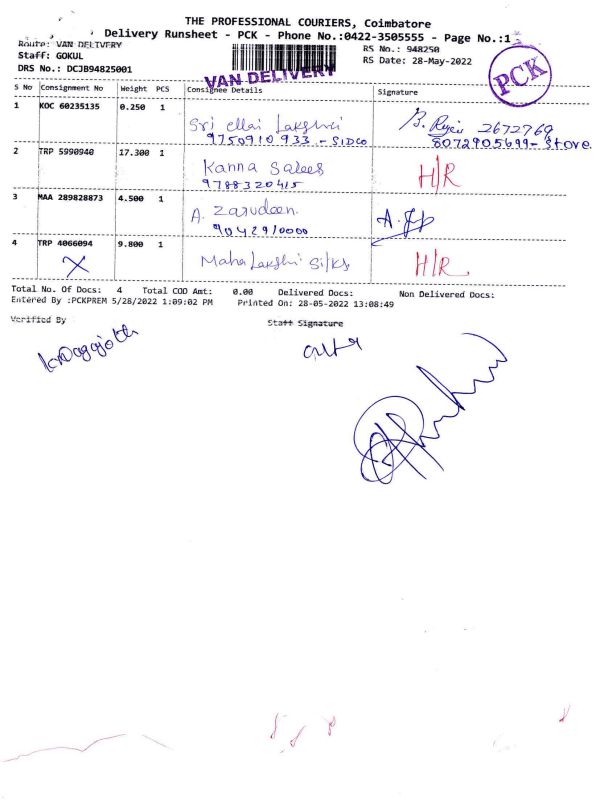 THE PROFESSIONAL COURIERS, Coimbatore
Delivery Runsheet - PCK - Phone No.:0422-3505555 - Page No.:1
Route: VAN DELIVERY
RS No.: 948250
Staff: GOKUL
RS Date: 28-May-2022
DRS No.: DCJB94825001
VAN DELIVERY
PCK
S No Consignment No Weight PCS Consignee Details Signature
1 KOC 60235135 0.250 1
Sri ellai Lakshmi
2672769
9750910933 - SIDCO
8072905699 - Store
2 TRP 5990940 17.300 1
Kanna Salees H/R
9788320415
3 MAA 289828873 4.500 1
A. Zarudeen
9042910000
4 TRP 4066094 9.800 1
X Maha Lakshi Silks H/R
Total No. Of Docs: 4 Total COD Amt: 0.00 Delivered Docs: Non Delivered Docs:
Entered By :PCKPREM 5/28/2022 1:09:02 PM Printed On: 28-05-2022 13:08:49
Verified By Staff Signature